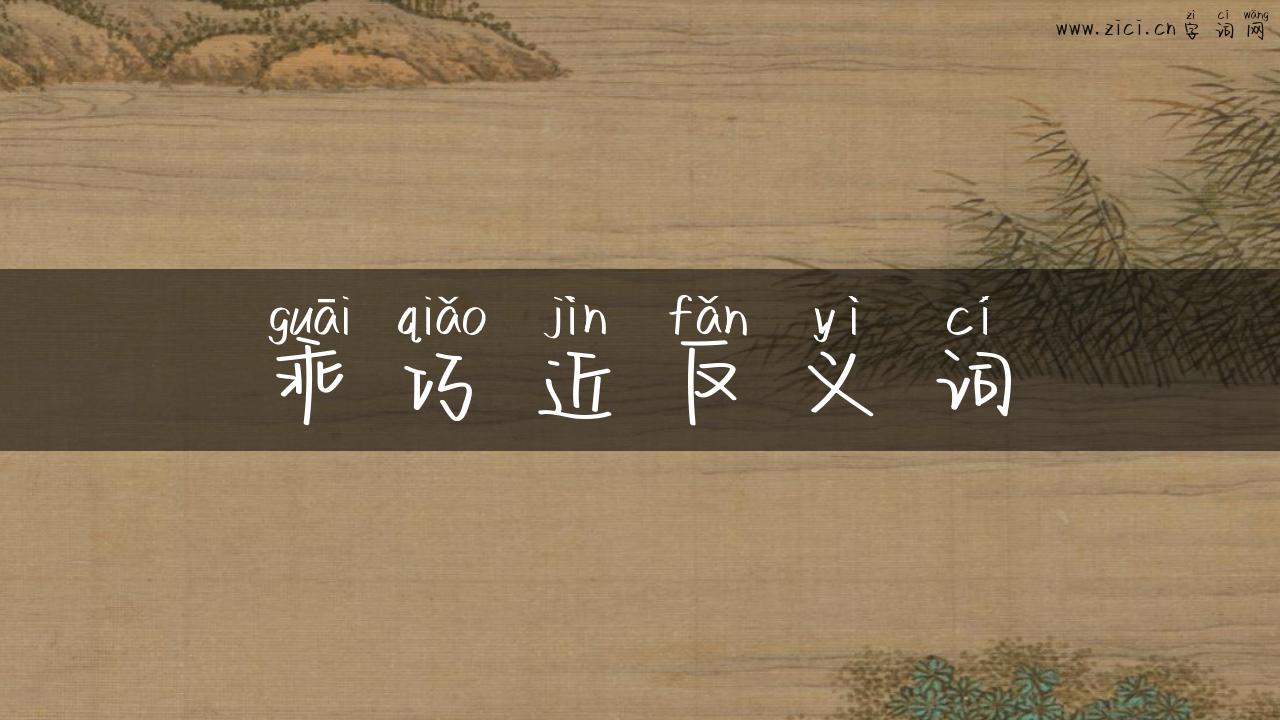 zì cí wǎng
www.zici.cn 字词网
guāi qiǎo jìn fǎn yì cí
乖巧近反义词